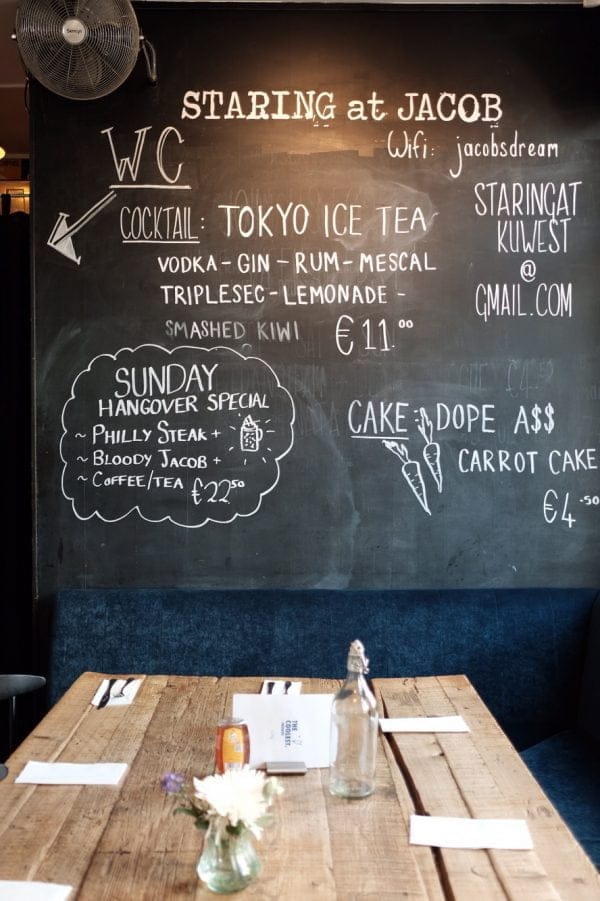 STARING at JACOB
Wifi: jacobsdream
WC
STARINGAT
KUWEST
@
GMAIL.COM
COCKTAIL: TOKYO ICE TEA
VODKA - GIN - RUM - MESCAL
TRIPLESEC - LEMONADE -
SMASHED KIWI €11.00
SUNDAY
HANGOVER SPECIAL
~ PHILLY STEAK +
~ BLOODY JACOB +
~ COFFEE/TEA €22.50
CAKE: DOPE A$$
CARROT CAKE
€4.50
THE
COOLEST.